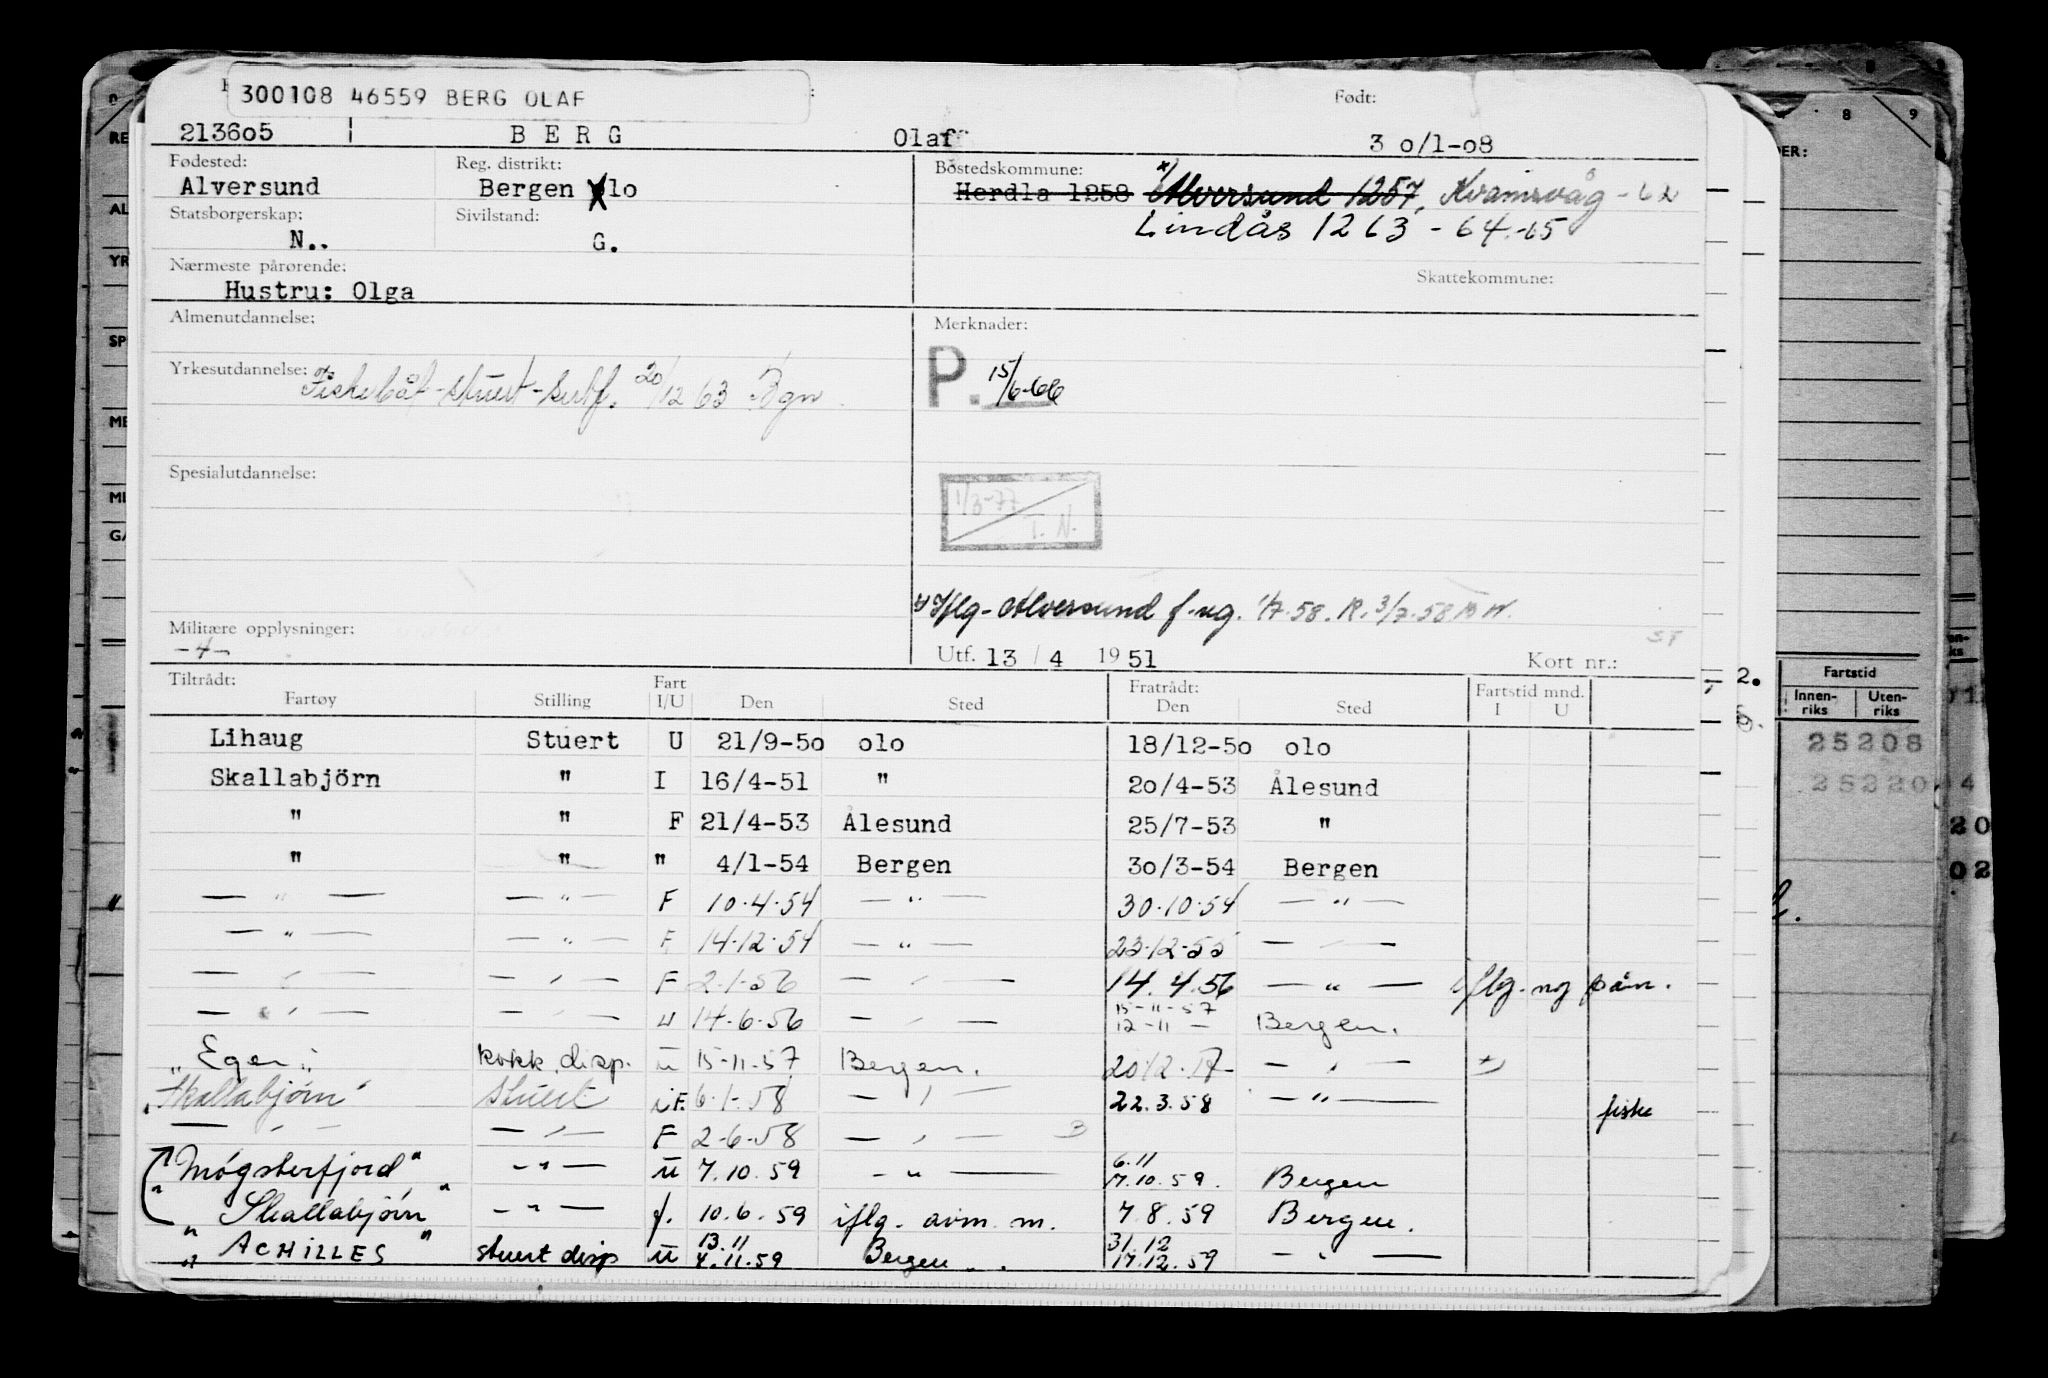 300108 46559 BERG OLAF
Født:
213605 B E R G Olaf 3 0/1-08
Fødested: Reg. distrikt: Bostedskommune:
Alversund Bergen olo Herdla 1258 x/ Alversund 1257, Kvamsvåg - 62
Statsborgerskap: Sivilstand: Lindås 1263 - 64-65
N.. G.
Nærmeste pårørende: Skattekommune:
Hustru: Olga
Almenutdannelse: Merknader:
Yrkesutdannelse: P. 15/6-66
Fiskebåt-stuert-sertf. 20/12 63 Bgn
Spesialutdannelse:
1/3-77
T. N.
x/ Iflg. Alversund f.reg. 1/7.58. R. 3/7.58
Militære opplysninger:
-4-
Utf. 13 / 4 1951 Kort nr.:
Tiltrådt: Fratrådt:
Fartøy Stilling Fart I/U Den Sted Den Sted Fartstid mnd. I U
Lihaug Stuert U 21/9-50 olo 18/12-50 olo
Skallabjörn " I 16/4-51 " 20/4-53 Ålesund
" " F 21/4-53 Ålesund 25/7-53 "
" " " 4/1-54 Bergen 30/3-54 Bergen
— " — — " — F 10.4.54 — " — 30.10.54 — " —
— " — — " — F 14.12.54 — " — 23.12.55 — " —
— " — — " — F 2.1.56 — " — 14.4.56 — " — iflg. no påm.
— " — — " — " 14.6.56 — " — 15-11-57 12-11 — Bergen.
"Eger" kokk disp. u 15-11.57 Bergen. 20.12.57 — " —
"Skallabjørn" Stuert F. 6.1.58 — " — 22.3.58 — " — fiske
— " — — " — F 2-6-58 — " —
"Møgsterfjord" — " — u 7.10.59 — " — 6.11 17.10.59. Bergen
"Skallabjørn" — " — f. 10.6.59 iflg. avm. m. 7.8.59 Bergen.
"ACHILLES" stuert disp u 13.11 4.11.59 Bergen 31.12 17.12.59 — " —
Fartstid
Innen-riks Uten-riks
25208
25220